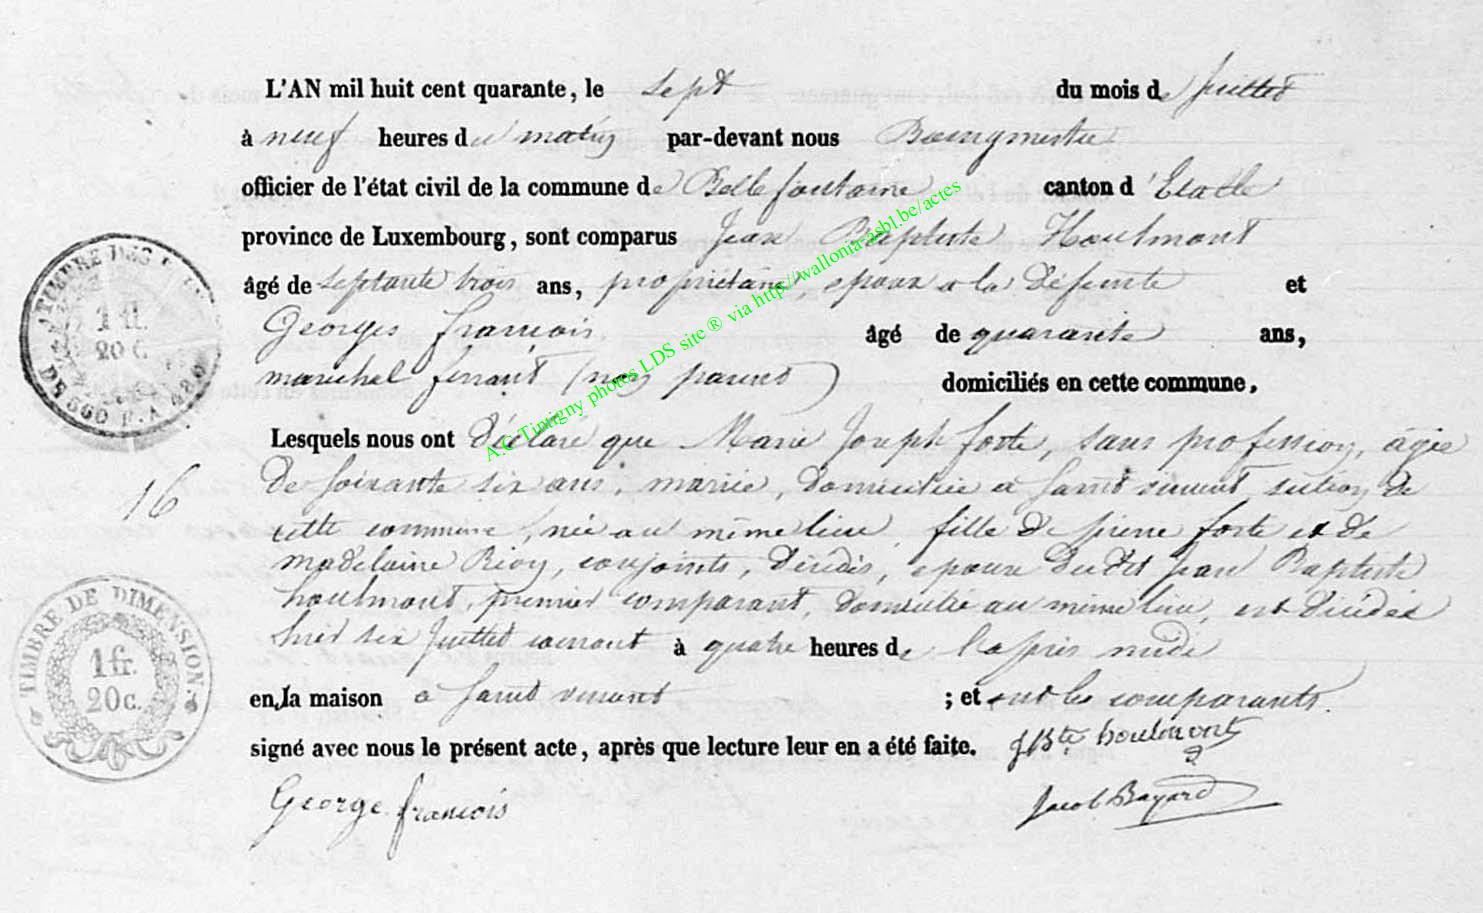 L'AN mil huit cent quarante, le sept du mois de juillet
à neuf heures du matin par-devant nous Bourgmestre
officier de l'état civil de la commune de Bellefontaine canton d'Etalle
province de Luxembourg, sont comparus Jean Baptiste Houlmont
âgé de septante trois ans, propriétaire, epoux a la défunte et
Georges francois âgé de quarante ans,
marechal ferrant (non parent) domiciliés en cette commune.
Lesquels nous ont déclaré que Marie Joseph forte, sans profession, agée
16
de soixante six ans, mariée, domiciliée a Saint vincent, section de
cette commune, née au même lieu, fille de pierre forte et de
madelaine Rion, conjoints, décédés, epouse dudit Jean Baptiste
houlmont, premier comparant, domicilié au même lieu, est décédée
hier six Juillet courant à quatre heures de l'après midi
en la maison a Saint vincent ; et ont les comparants.
signé avec nous le présent acte, après que lecture leur en a été faite.
JBte houlmont
George francois
Jacob Bayard
TIMBRE DES
1 fl.
20 C.
TIMBRE DE DIMENSION.
1 fr.
20 c.
A.C Tintigny photos LDS site ® via http://wallonia-asbl.be/actes